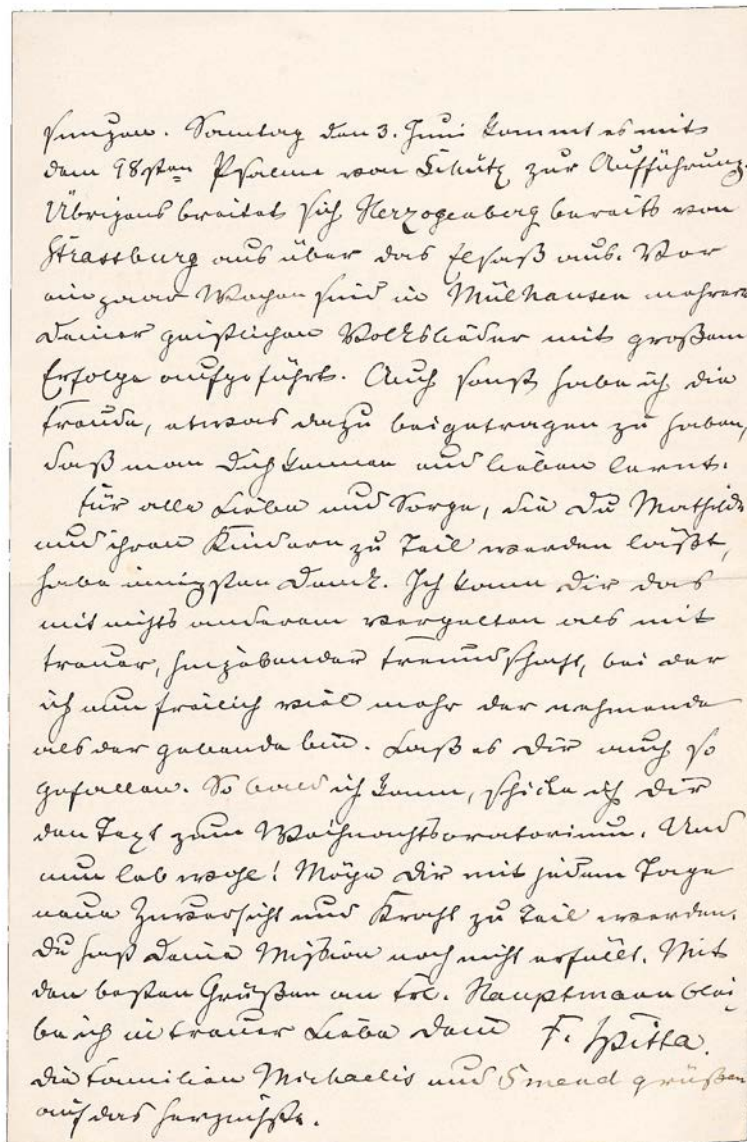 singen. Sonntag den 3. Juni kommt es mit
dem 98sten Psalme von Schütz zur Aufführung.
Übrigens breitet sich Herzogenberg bereits von
Strassburg aus über das Elsaß aus. Vor
ein paar Wochen sind in Mülhausen mehrere
Deiner geistlichen Volkslieder mit großem
Erfolge aufgeführt. Auch sonst habe ich die
Freude, etwas dazu beigetragen zu haben,
daß man Dich kennen und lieben lernt.
Für alle Liebe und Sorge, die Du Mathilde
und ihren Kindern zu Teil werden läßt,
habe innigsten Dank. Ich kann Dir das
mit nichts anderem vergelten als mit
treuer, hingebender Freundschaft, bei der
ich nun freilich viel mehr der nehmende
als der gebende bin. Laß es Dir auch so
gefallen. So bald ich kann, schicke ich Dir
den Text zum Weihnachtsoratorium. Und
nun leb wohl! Möge Dir mit jedem Tage
neue Zuversicht und Kraft zu Teil werden.
Du hast Deine Mission noch nicht erfüllt. Mit
den besten Grüßen an Frl. Hauptmann blei-
be ich in treuer Liebe Dein F. Spitta.
Die Familien Michaelis und Smend grüßen
auf das herzlichste.